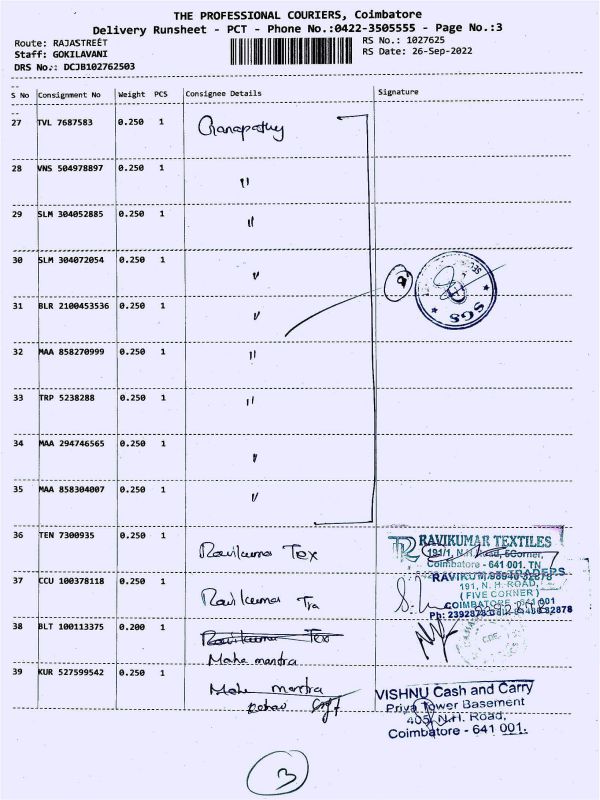 THE PROFESSIONAL COURIERS, Coimbatore
Delivery Runsheet - PCT - Phone No.:0422-3505555 - Page No.:3
Route: RAJASTREET
RS No.: 1027625
Staff: GOKILAVANI
RS Date: 26-Sep-2022
DRS No.: DCJB102762503
S No Consignment No Weight PCS Consignee Details Signature
27 TVL 7687583 0.250 1 Ganapathy
28 VNS 504978897 0.250 1 "
29 SLM 304052885 0.250 1 "
30 SLM 304072054 0.250 1 "
31 BLR 2100453536 0.250 1 "
32 MAA 858270999 0.250 1 "
33 TRP 5238288 0.250 1 "
34 MAA 294746565 0.250 1 "
35 MAA 858304007 0.250 1 "
SGS
36 TEN 7300935 0.250 1 Ravikumar Tex
RAVIKUMAR TEXTILES
191/1, N.H. Road, 5Corner,
Coimbatore - 641 001. TN
37 CCU 100378118 0.250 1 Ravikumar Tra
RAVIKUMAR TRADERS
191, N. H. ROAD,
( FIVE CORNER )
COIMBATORE - 641 001
38 BLT 100113375 0.200 1 Ravikumar Tex
Maha mantra
39 KUR 527599542 0.250 1 Maha mantra
VISHNU Cash and Carry
Priya Tower Basement
405, N.H. Road,
Coimbatore - 641 001.
3